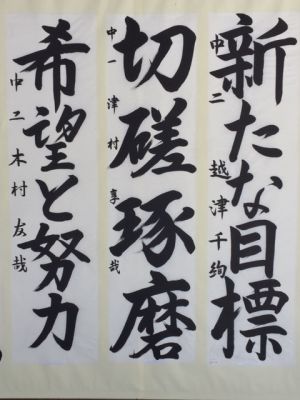 新たな目標
中二 越津千絢
切磋琢磨
中一 津村享哉
希望と努力
中二 木村友哉